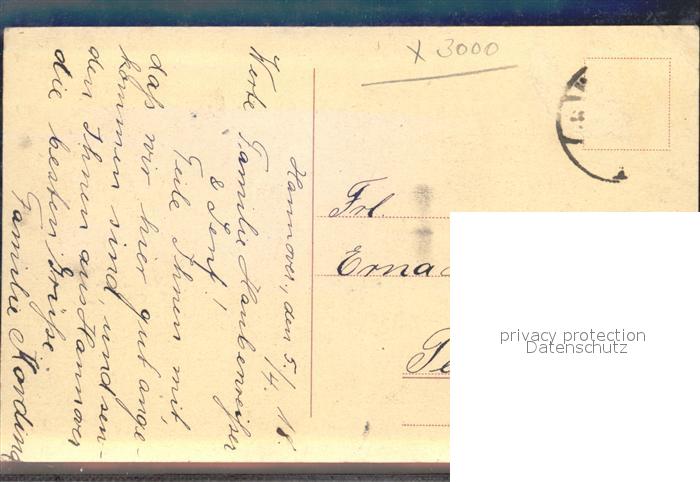 x 3000
Hannover, den 5./4. 18.
Werte Familie Haubenreißer
& Senf!
Teile Ihnen mit
das wir hier gut ange-
kommen sind, und sen-
den Ihnen aus Hannover
die besten Grüße
Familie Kording
Frl.
Erna
privacy protection
Datenschutz